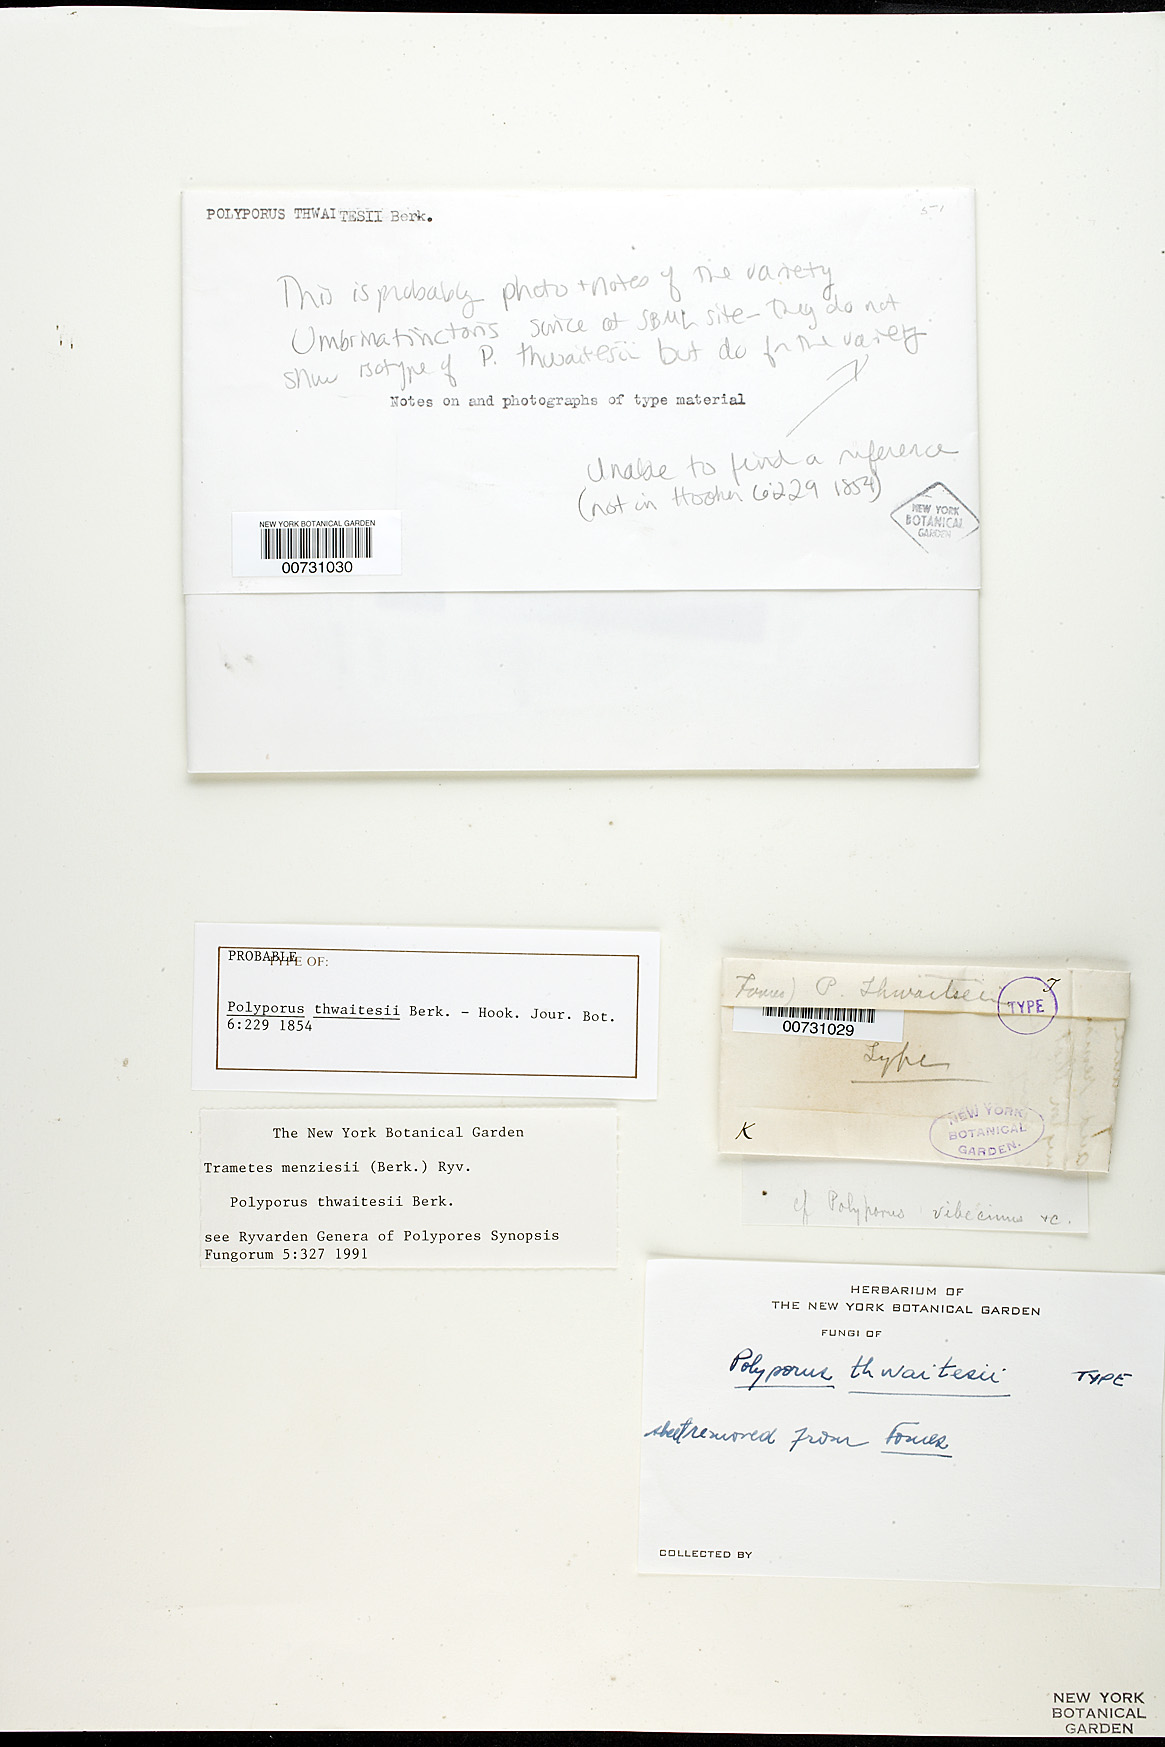 POLYPORUS THWAITESII Berk.
This is probably photo + notes of the variety
Umbrinatinctoris since at SBML site - they do not
show isotype of P. thwaitesii but do for the variety
Notes on and photographs of type material
Unable to find a reference
(not in Hooker 6:229 1854)
NEW YORK
BOTANICAL
GARDEN
NEW YORK BOTANICAL GARDEN
00731030
PROBABLE
TYPE OF:
Polyporus thwaitesii Berk. - Hook. Jour. Bot.
6:229 1854
The New York Botanical Garden
Trametes menziesii (Berk.) Ryv.
Polyporus thwaitesii Berk.
see Ryvarden Genera of Polypores Synopsis
Fungorum 5:327 1991
Fomes) P. thwaitesii
T
TYPE
00731029
Type
K
NEW YORK
BOTANICAL
GARDEN.
cf Polyporus vibecinus &c.
HERBARIUM OF
THE NEW YORK BOTANICAL GARDEN
FUNGI OF
Polyporus thwaitesii TYPE
removed from Fomes
COLLECTED BY
NEW YORK
BOTANICAL
GARDEN